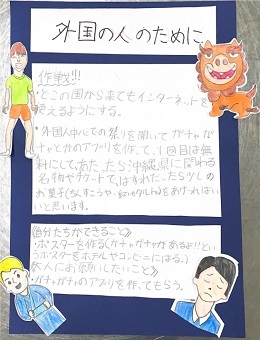 外国の人のために
作戦!!!
・どこの国から来てもインターネットを
使えるようにする。
・外国人中心での祭りを開いてガチャガ
チャとかのアプリを作って、1回目は無
料にして、あたったら沖縄県に関わる
名物やチケートで、はずれたら
お菓子(ちんすこうや・紅いもタルト)をあげればい
いと思います。
《自分たちができること》
・ポスターを作る(ガチャガチャがあるよ!!とい
うポスターをホテルやコンビニにはる。)
《大人にお願いしたいこと》
・ガチャガチャのアプリを作ってもらう。